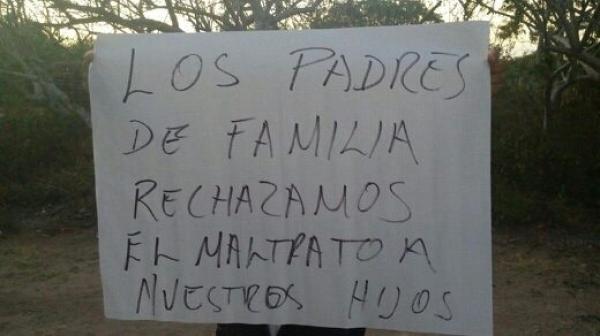 LOS PADRES
DE FAMILIA
RECHAZAMOS
EL MALTRATO A
NUESTROS HIJOS